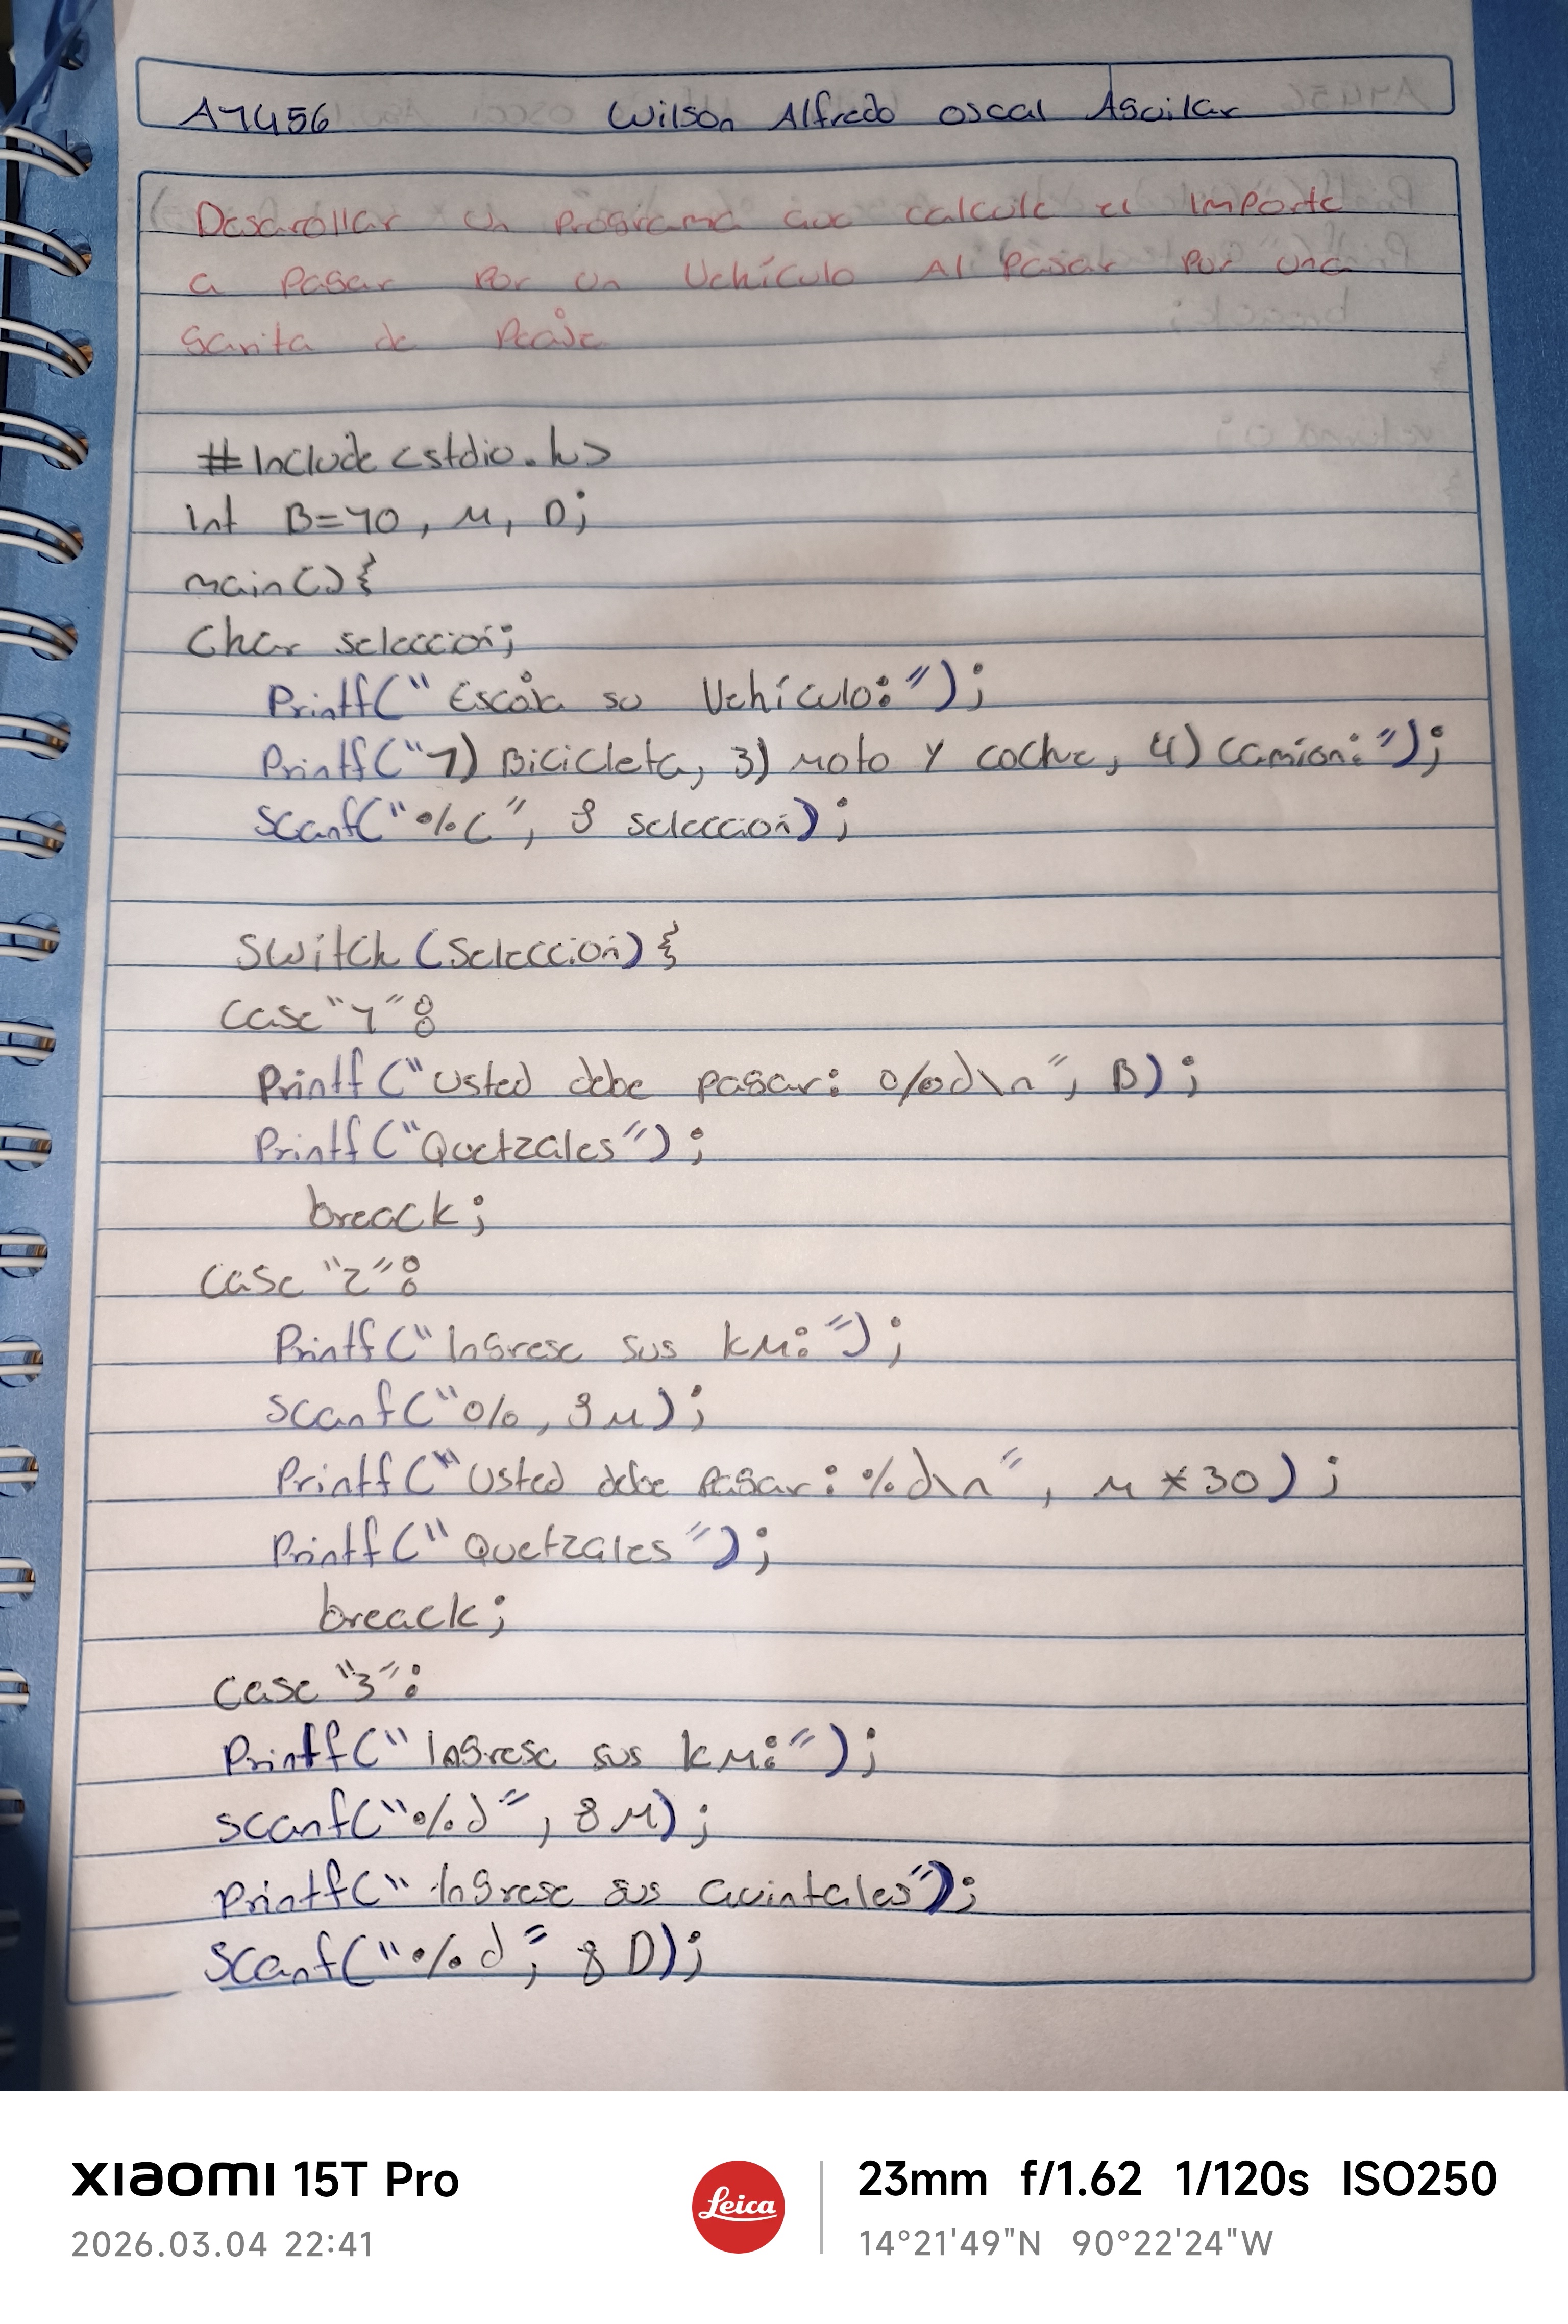 A1456 Wilson Alfredo Oscal Aguilar
Desarollar un programa que calcule el importe
a pagar por un vehículo Al pasar por una
garita de Peaje
#Include <stdio.h>
Int B=10, M, D;
main(){
Char seleccion;
Printf(" Escoja su Vehículo:");
Printf("1) Bicicleta, 3) Moto Y coche, 4) Camion:");
Scanf("%c", & seleccion);
Switch (Seleccion){
Case "1":
Printf("Usted debe pagar: %d\n", B);
Printf("Quetzales");
breack;
Case "2":
Printf("Ingrese sus kM:");
Scanf("%, &M);
Printf("Usted debe Pagar: %d\n", M*30);
Printf("Quetzales");
breack;
Case "3":
Printf("Ingrese sus kM:");
Scanf("%d", &M);
Printf("Ingrese sus Quintales");
Scanf("%d", &D);
XIAOMI 15T Pro
2026.03.04 22:41
Leica
23mm f/1.62 1/120s ISO250
14°21'49"N 90°22'24"W